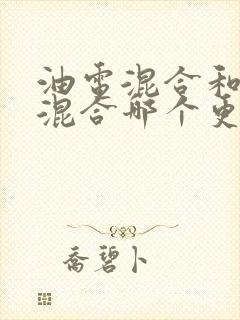 油电混合和
混合哪个更
乔碧卜